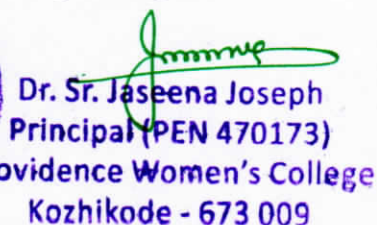 Dr. Sr. Jaseena Joseph
Principal (PEN 470173)
ovidence Women's College
Kozhikode - 673 009